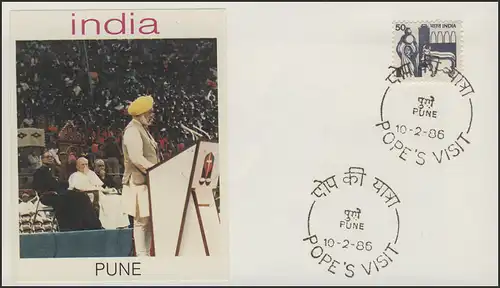 india
PUNE
50
भारत INDIA
पोप की यात्रा
पुणे
PUNE
10-2-86
POPE'S VISIT
पोप की यात्रा
पुणे
PUNE
10-2-86
POPE'S VISIT